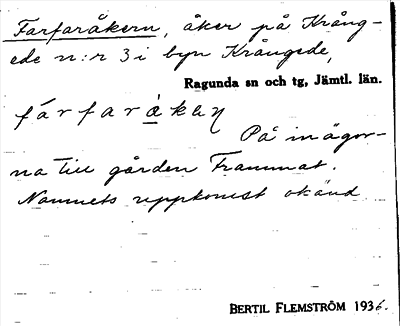 Farfaråkern, åker på Krång-
ede n:r 3 i byn Krångede,
Ragunda sn och tg, Jämtl. län.
fárfaràkeṇ
På inägor-
na till gården Frammat.
Namnets uppkomst okänd
BERTIL FLEMSTRÖM 1936.